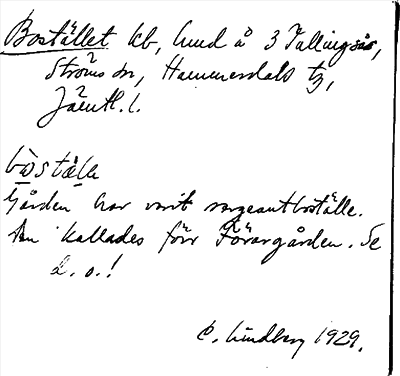 Bostället kb, hmd å 3 Tullingsås,
Ströms sn, Hammerdals tg,
Jämtl. l.
bo̱stæ̱lle
Gården har varit sergeantboställe.
Den kallades förr Förargården. Se
d. o.!
C. Lindberg 1929.